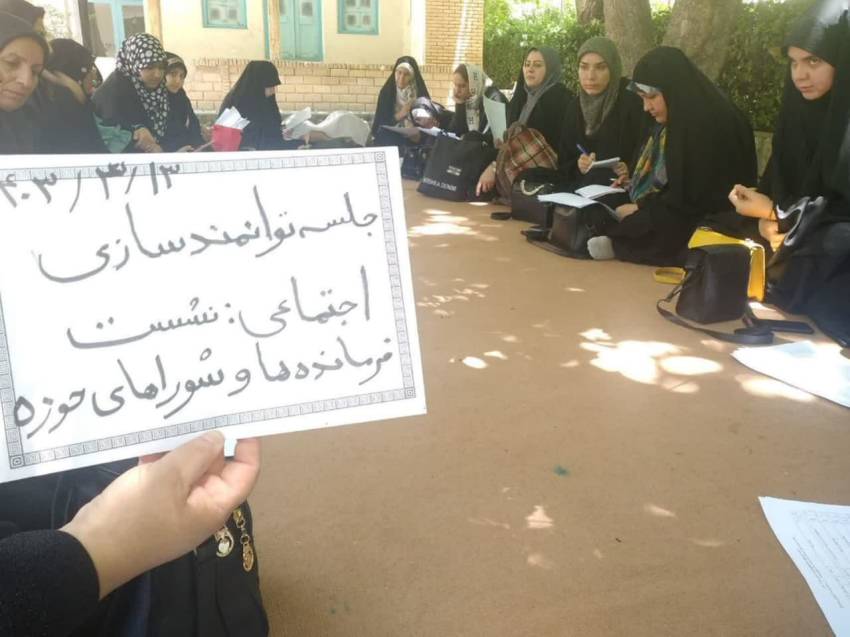 ۴۰۳/۳/۱۳
جلسه توانمندسازی
اجتماعی: نشست
فرمانده ها و شوراهای حوزه